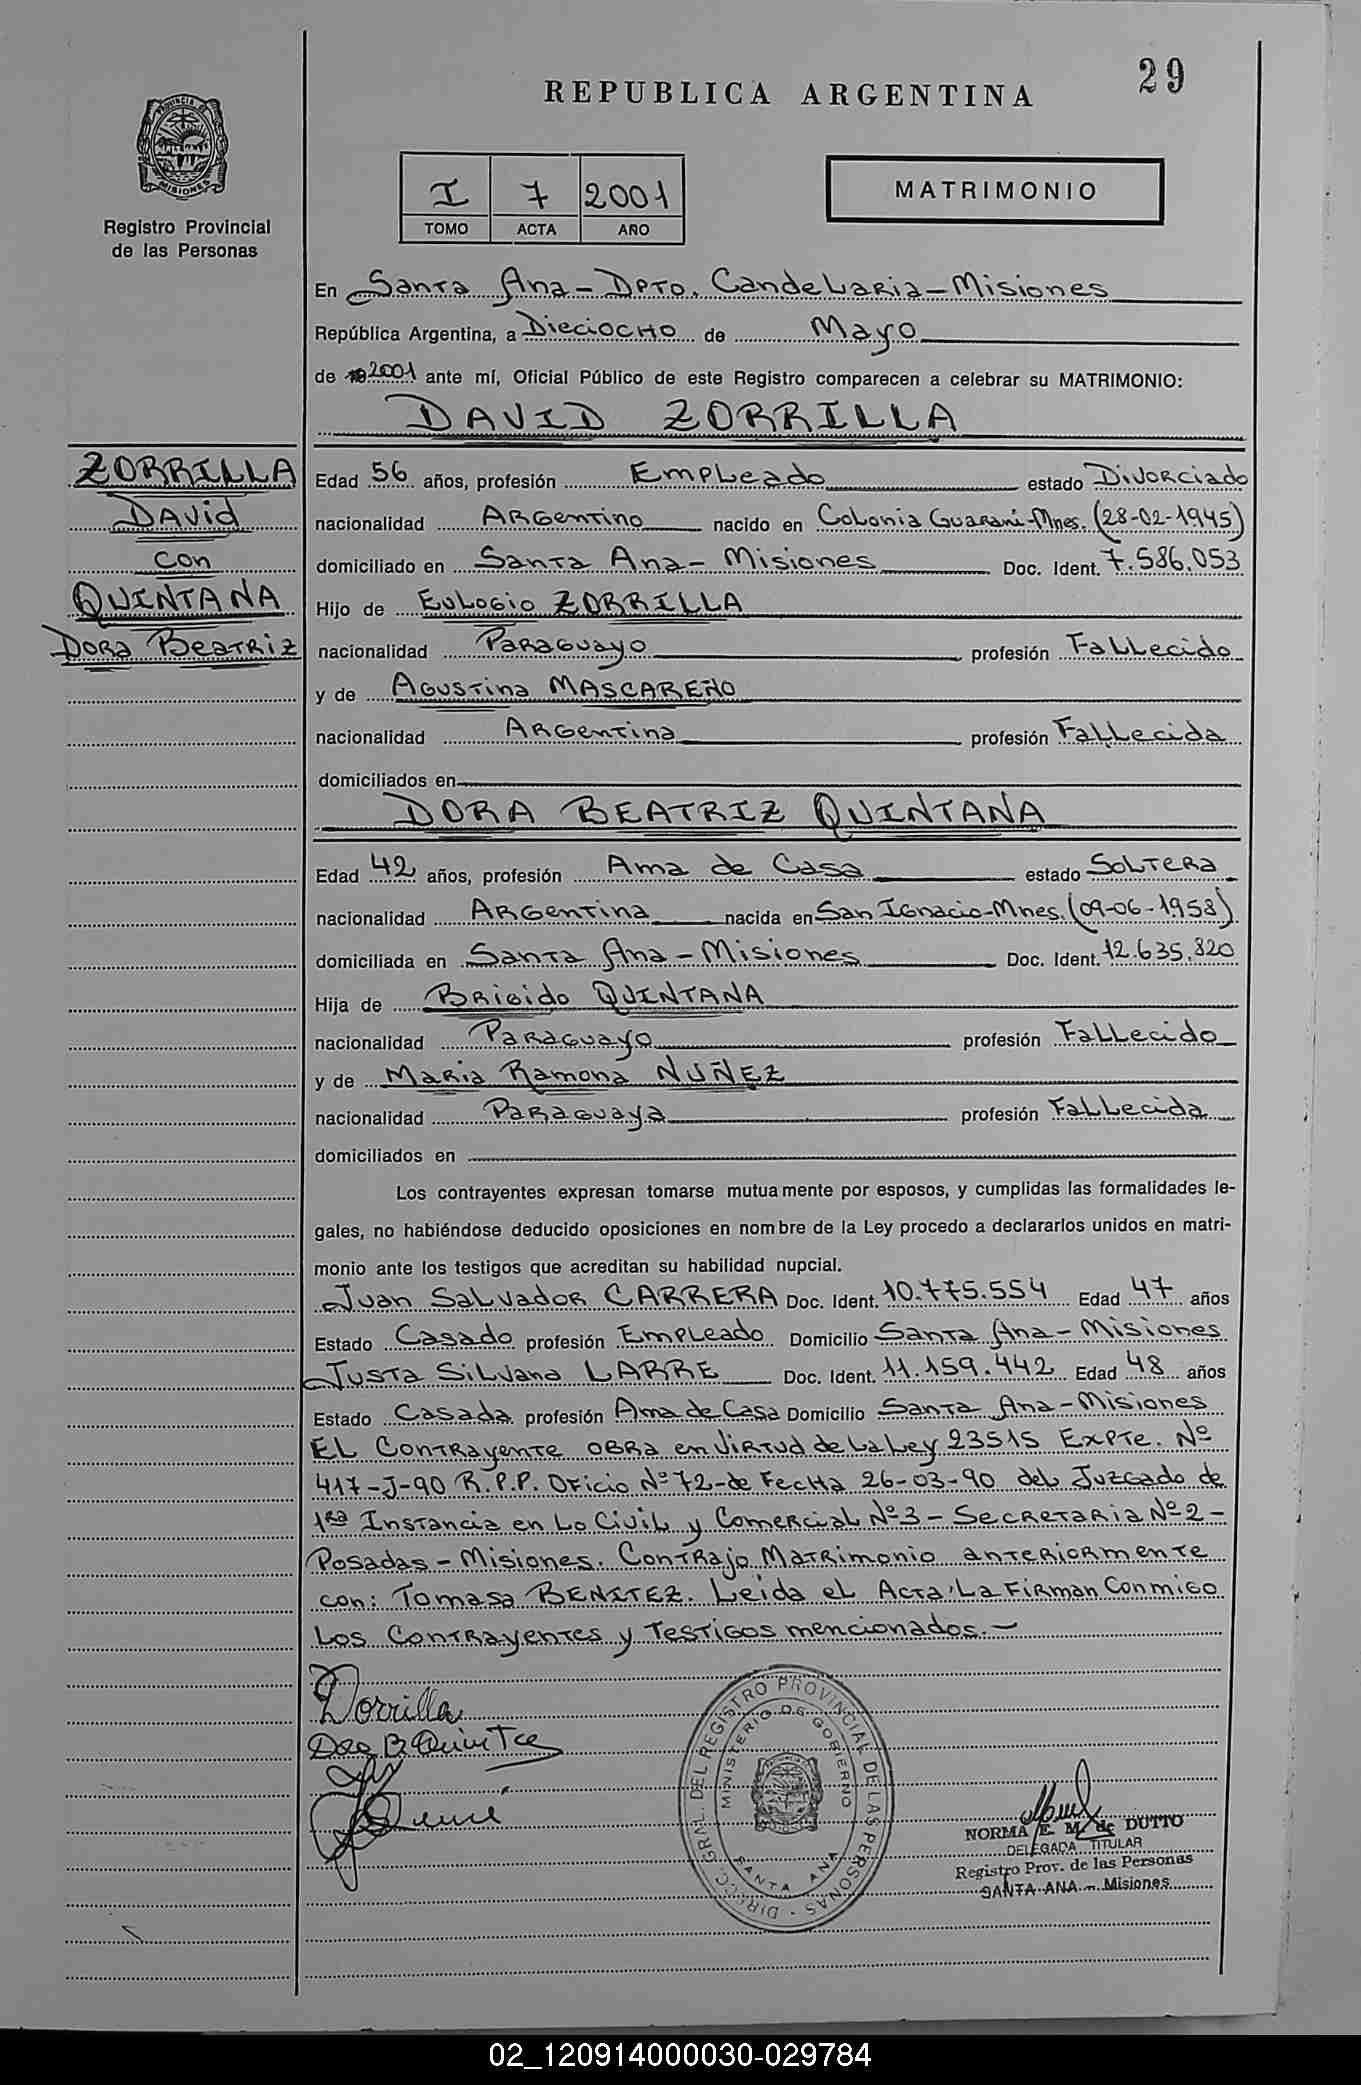 29
REPUBLICA ARGENTINA
PROVINCIA DE
MISIONES
Registro Provincial
de las Personas
I 7 2001
TOMO ACTA AÑO
MATRIMONIO
En Santa Ana - Dpto. Candelaria - Misiones
República Argentina, a Dieciocho de Mayo
de 2001 ante mí, Oficial Público de este Registro comparecen a celebrar su MATRIMONIO:
DAVID ZORRILLA
ZORRILLA
David
con
QUINTANA
Dora Beatriz
Edad 56 años, profesión Empleado estado Divorciado
nacionalidad Argentino nacido en Colonia Guaraní-Mnes. (28-02-1945)
domiciliado en Santa Ana - Misiones Doc. Ident. 7.586.053
Hijo de Eulogio ZORRILLA
nacionalidad Paraguayo profesión Fallecido
y de Agustina MASCAREÑO
nacionalidad Argentina profesión Fallecida
domiciliados en
DORA BEATRIZ QUINTANA
Edad 42 años, profesión Ama de Casa estado Soltera
nacionalidad Argentina nacida en San Ignacio-Mnes. (09-06-1958)
domiciliada en Santa Ana - Misiones Doc. Ident. 12.635.820
Hija de Brigido QUINTANA
nacionalidad Paraguayo profesión Fallecido
y de Maria Ramona NUÑEZ
nacionalidad Paraguaya profesión Fallecida
domiciliados en
Los contrayentes expresan tomarse mutuamente por esposos, y cumplidas las formalidades le-
gales, no habiéndose deducido oposiciones en nombre de la Ley procedo a declararlos unidos en matri-
monio ante los testigos que acreditan su habilidad nupcial.
Juan Salvador CARRERA Doc. Ident. 10.775.554 Edad 47 años
Estado Casado profesión Empleado Domicilio Santa Ana - Misiones
Justa Silvana LARRE Doc. Ident. 11.159.442 Edad 48 años
Estado Casada profesión Ama de Casa Domicilio Santa Ana - Misiones
El Contrayente obra en virtud de la Ley 23515 Expte. Nº
417-J-90 R.P.P. Oficio Nº 72-de Fecha 26-03-90 del Juzgado de
1ra Instancia en Lo Civil y Comercial Nº 3 - Secretaria Nº 2 -
Posadas - Misiones. Contrajo Matrimonio anteriormente
con: Tomasa BENITEZ. Leida el Acta, La Firman Conmigo
Los Contrayentes y Testigos mencionados. -
Dorrilla
DIRECC. GRAL. DEL REGISTRO PROVINCIAL DE LAS PERSONAS -
MINISTERIO DE GOBIERNO
SANTA ANA
NORMA E. M. de DUTTO
DELEGADA TITULAR
Registro Prov. de las Personas
SANTA ANA - Misiones
02_120914000030-029784